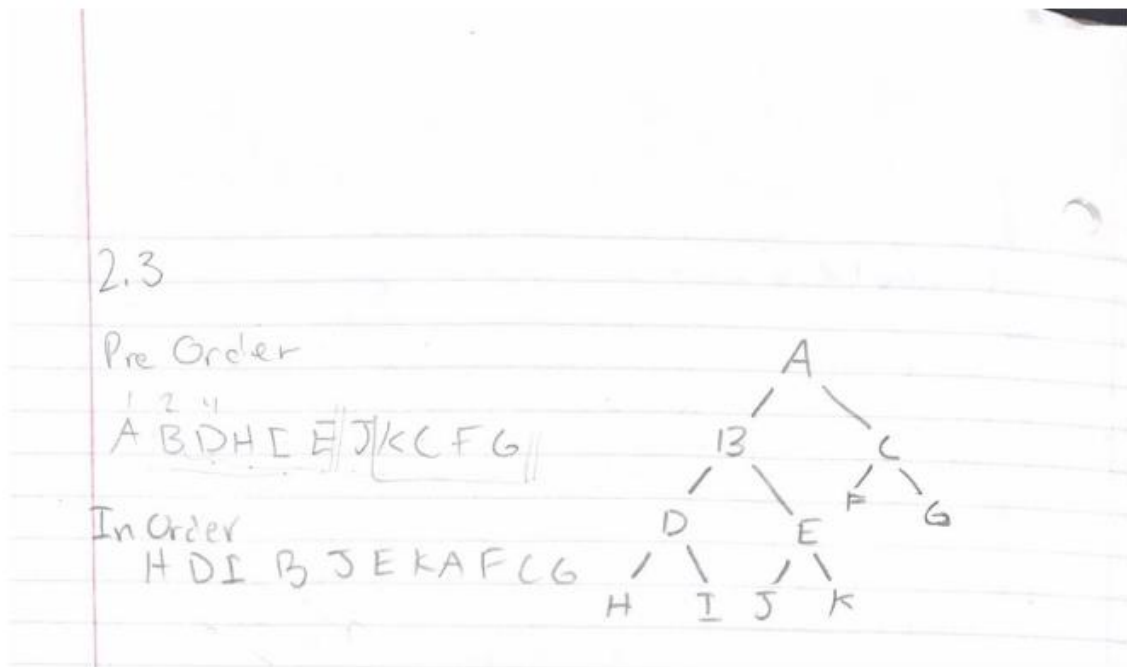 2.3
Pre Order
1 2 4
A B D H I E J K C F G
In Order
H D I B J E K A F C G
A
B C
D E F G
H I J K